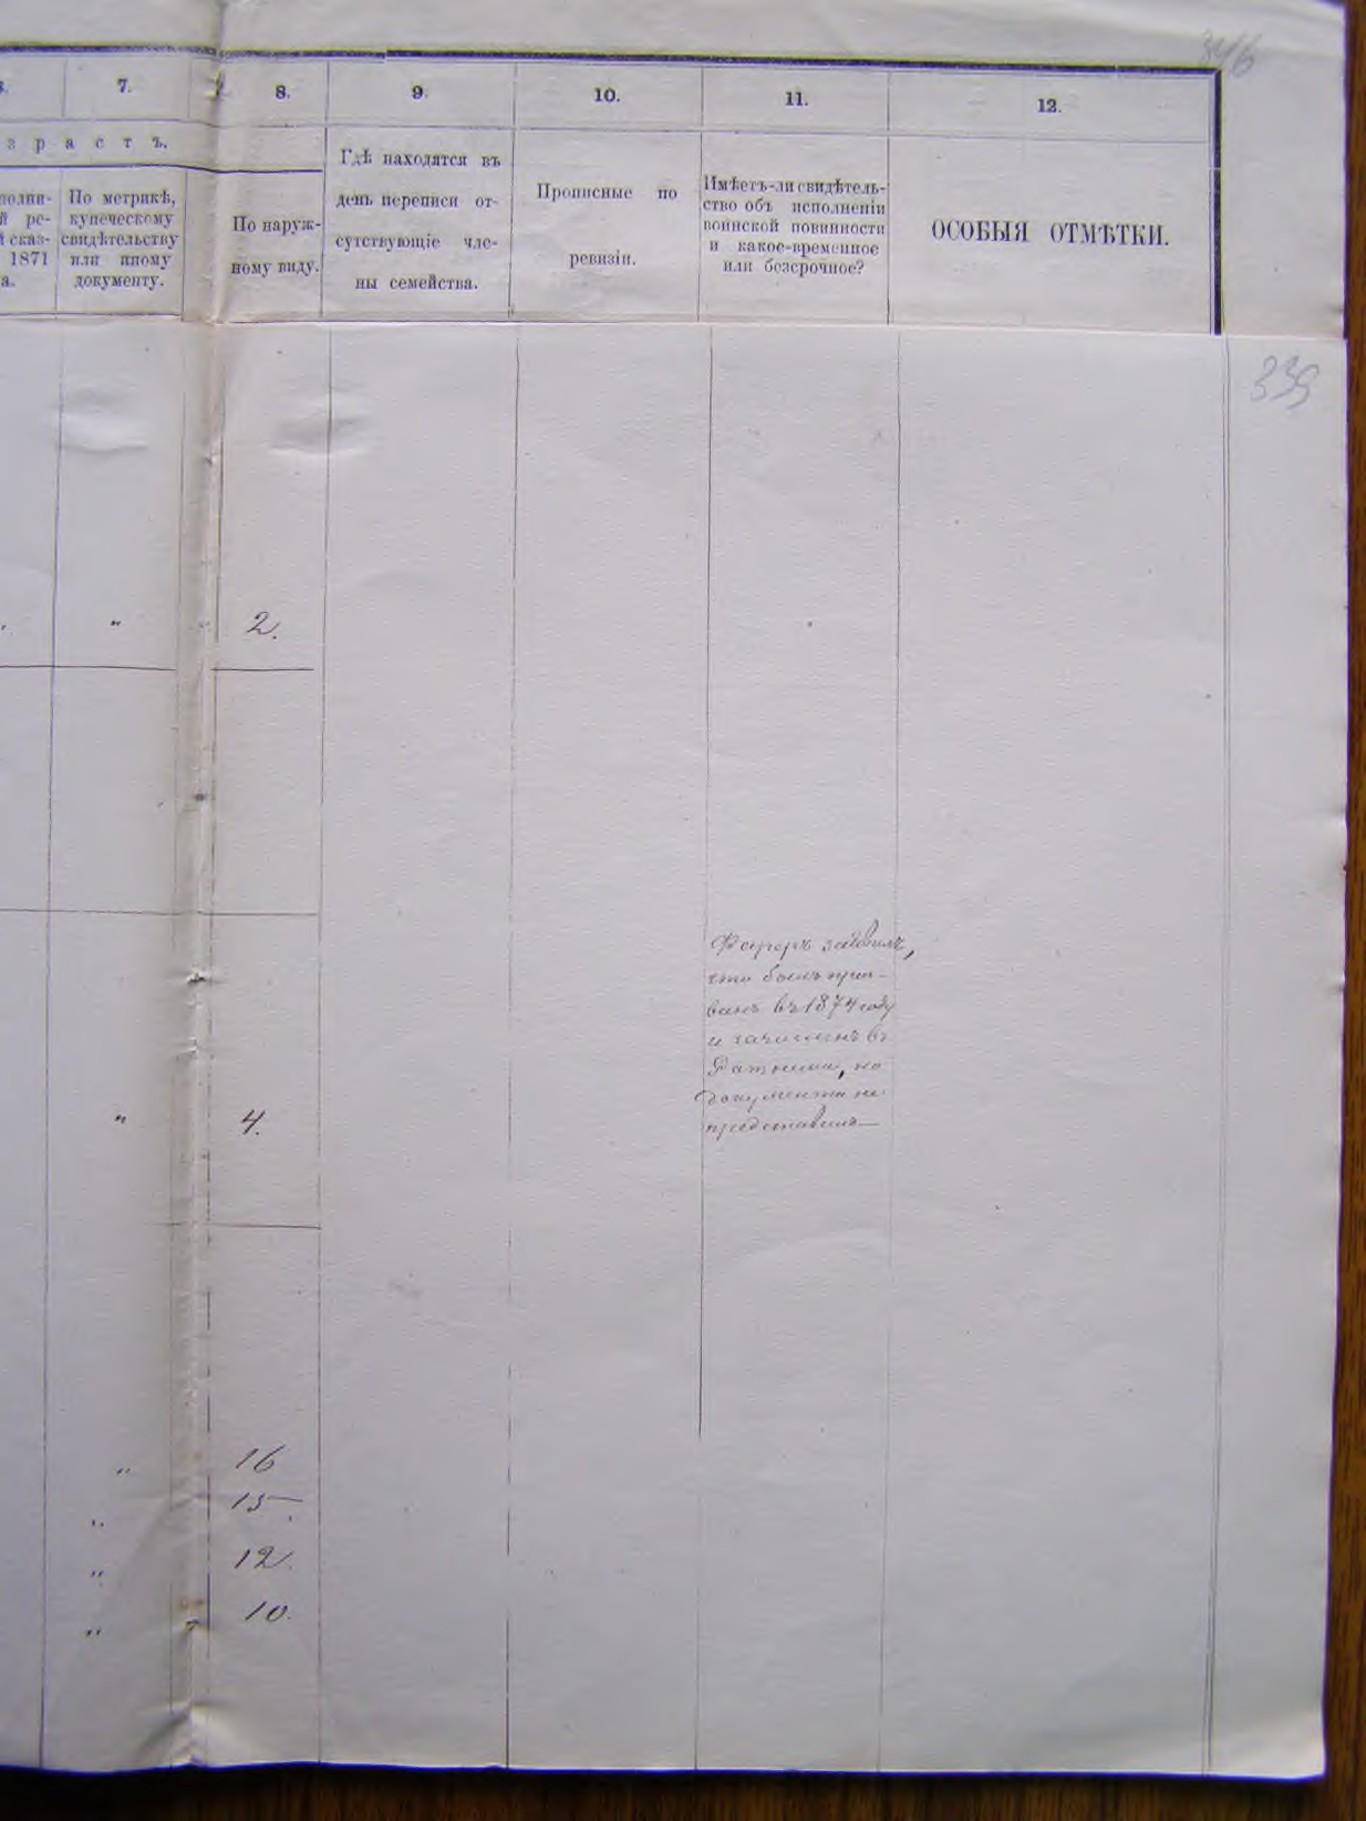 346
7.
8.
9.
10.
11.
12.
зрастъ.
полни-
й ре-
й сказ-
1871
а.
По метрикѣ,
купеческому
свидѣтельству
или иному
документу.
По наруж-
ному виду.
Гдѣ находятся въ
день переписи от-
сутствующіе чле-
ны семейства.
Прописные по
ревизіи.
Имѣетъ-ли свидѣтель-
ство объ исполненіи
воинской повинности
и какое-временное
или безсрочное?
ОСОБЫЯ ОТМѢТКИ.
339
" 2.
заявилъ,
что былъ приз-
ванъ въ 1874 году
и зачисленъ въ
Ратники, но
документа не
представилъ—
" 4.
" 16
" 15
" 12.
" 10.